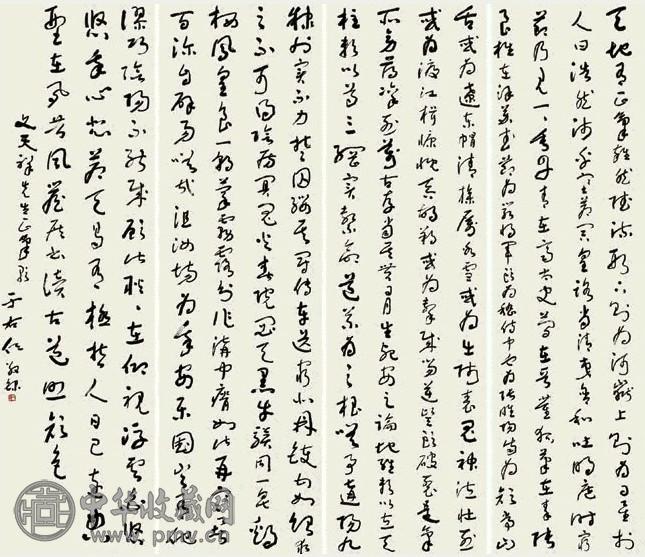 天地有正氣雜然賦流形下則為河嶽上則為日星於
人曰浩然沛乎塞蒼冥皇路當清夷含和吐明庭時窮
節乃見一一垂丹青在齊太史簡在晉董狐筆在秦張
良椎在漢蘇武節為嚴將軍頭為嵇侍中血為張睢陽齒為顏常山
舌或為遼東帽清操厲冰雪或為出師表鬼神泣壯烈
或為渡江楫慷慨吞胡羯或為擊賊笏逆豎頭破裂是氣
所旁薄凜烈萬古存當其貫日月生死安足論地維賴以立天
柱賴以尊三綱實繫命道義為之根嗟予遘陽九
隸也實不力楚囚纓其冠傳車送窮北鼎鑊甘如飴求
之不可得陰房闃鬼火春院閟天黑牛驥同一皂雞
棲鳳凰食一朝蒙霧露分作溝中瘠如此再寒暑
百沴自辟易嗟哉沮洳場為我安樂國豈有他
繆巧陰陽不能賊顧此耿耿在仰視浮雲白悠
悠我心悲蒼天曷有極哲人日已遠典
型在夙昔風簷展書讀古道照顏色
文天祥先生正氣歌
于右任敬錄
中华收藏网
www.pmz.cn